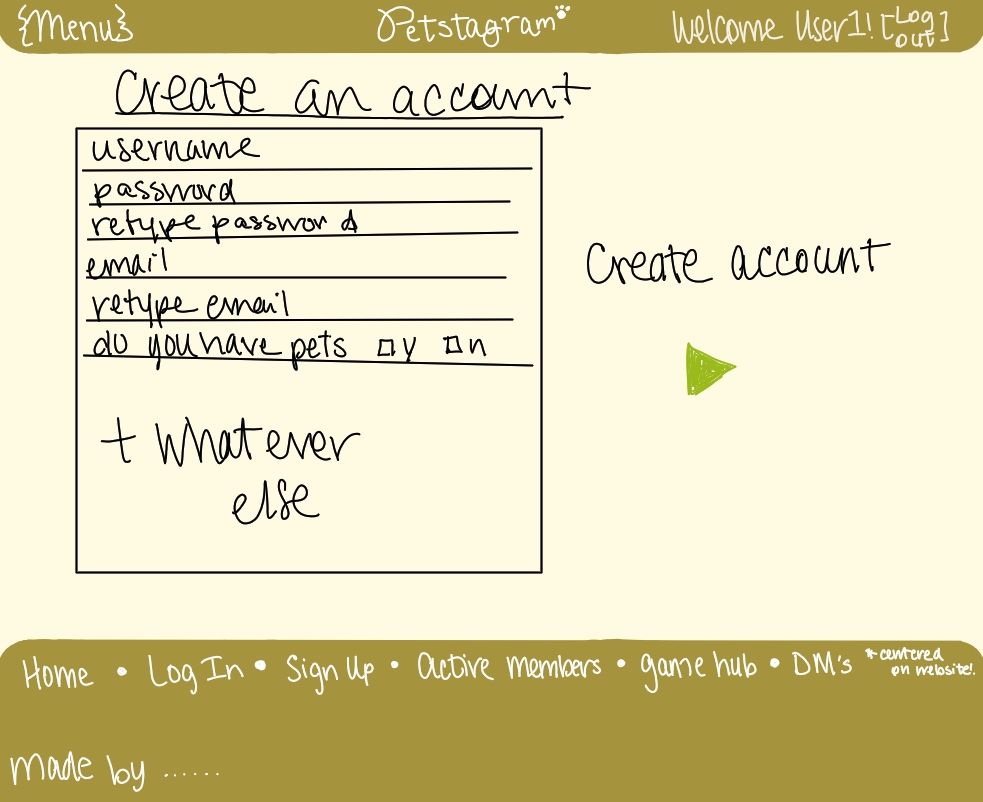 {Menu}
Petstagram
Welcome User1! [Log out]
Create an account
username
password
retype password
email
retype email
do you have pets □y □n
+ whatever
else
Create account
Home • Log In • Sign Up • Active members • game hub • DM's
*centered
on website!
made by ......